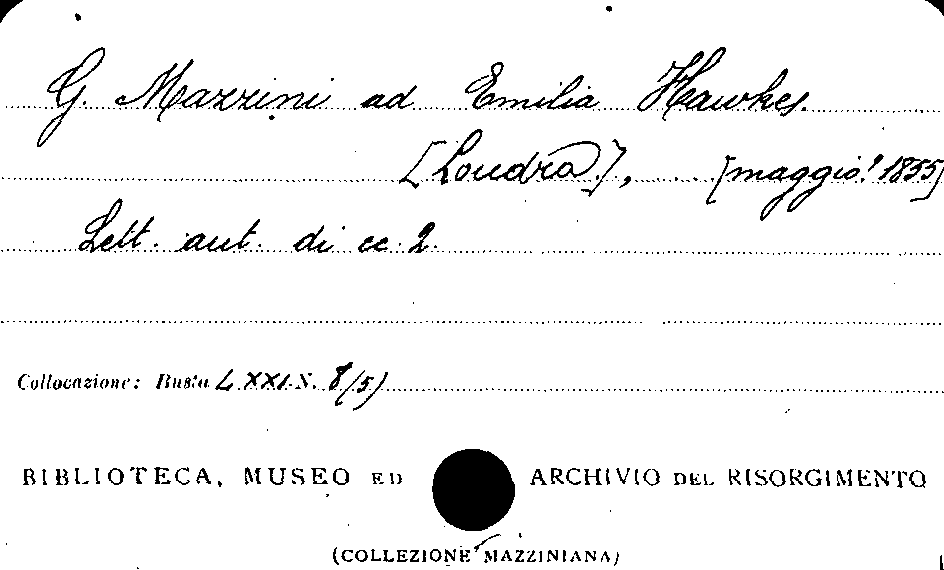 G. Mazzini ad Emilia Hawkes.
[Londra], ... [maggio? 1855]
Lett. aut. di cc. 2.
Collocazione: Busta LXXI N. 8/5)
BIBLIOTECA, MUSEO ED ARCHIVIO DEL RISORGIMENTO
(COLLEZIONE MAZZINIANA)